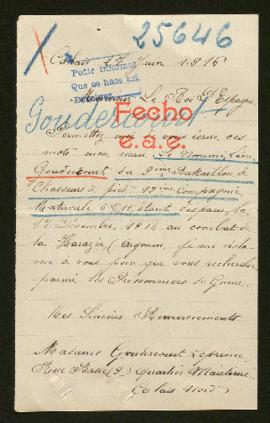 25646
Calais 27 Juin 1916
Pedir informes
Que se hace así
Monsieur Le Roi d'Espagne
Goudercourt
Fecho
e.a.e.
Permettez moi à vous écrire ces
mots mon mari Le nommé Léon
Goudercourt du 9ème Bataillon de
Chasseur à pied Compagnie
Matricule étant disparu le
17 Décembre 1914 au combat de
la Harazée Argonne, je me
à vous pour que vous rechercher
parmi les Prisonniers de Guerre.
Mes Sincères Remerciements
Madame Goudercourt
Rue Quartier Maritime
Calais Nord